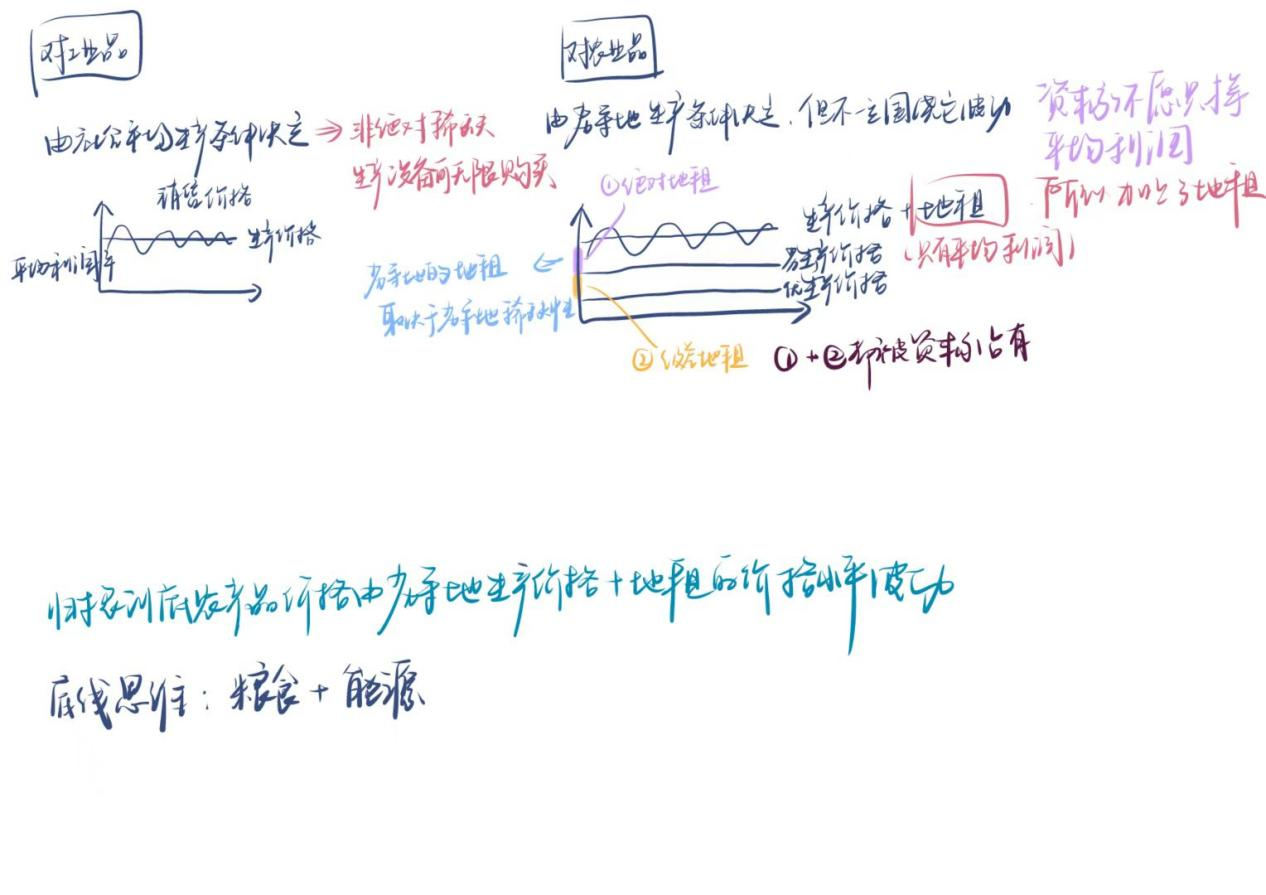 对工业品
由社会平均生产条件决定 ⇒ 非绝对稀缺
生产设备可无限购买
销售价格
生产价格
平均利润率
对农业品
由劣等地生产条件决定，但不一定围绕它波动
资本家不愿只挣
平均利润
所以加上了地租
①绝对地租
生产价格 + 地租
(只有平均利润)
劣生产价格
优生产价格
劣等地的地租 ←
取决于劣等地稀缺性
②级差地租
① + ② 都被资本家占有
农产品价格由劣等地生产价格 + 地租的价格水平波动
底线思维：粮食 + 能源